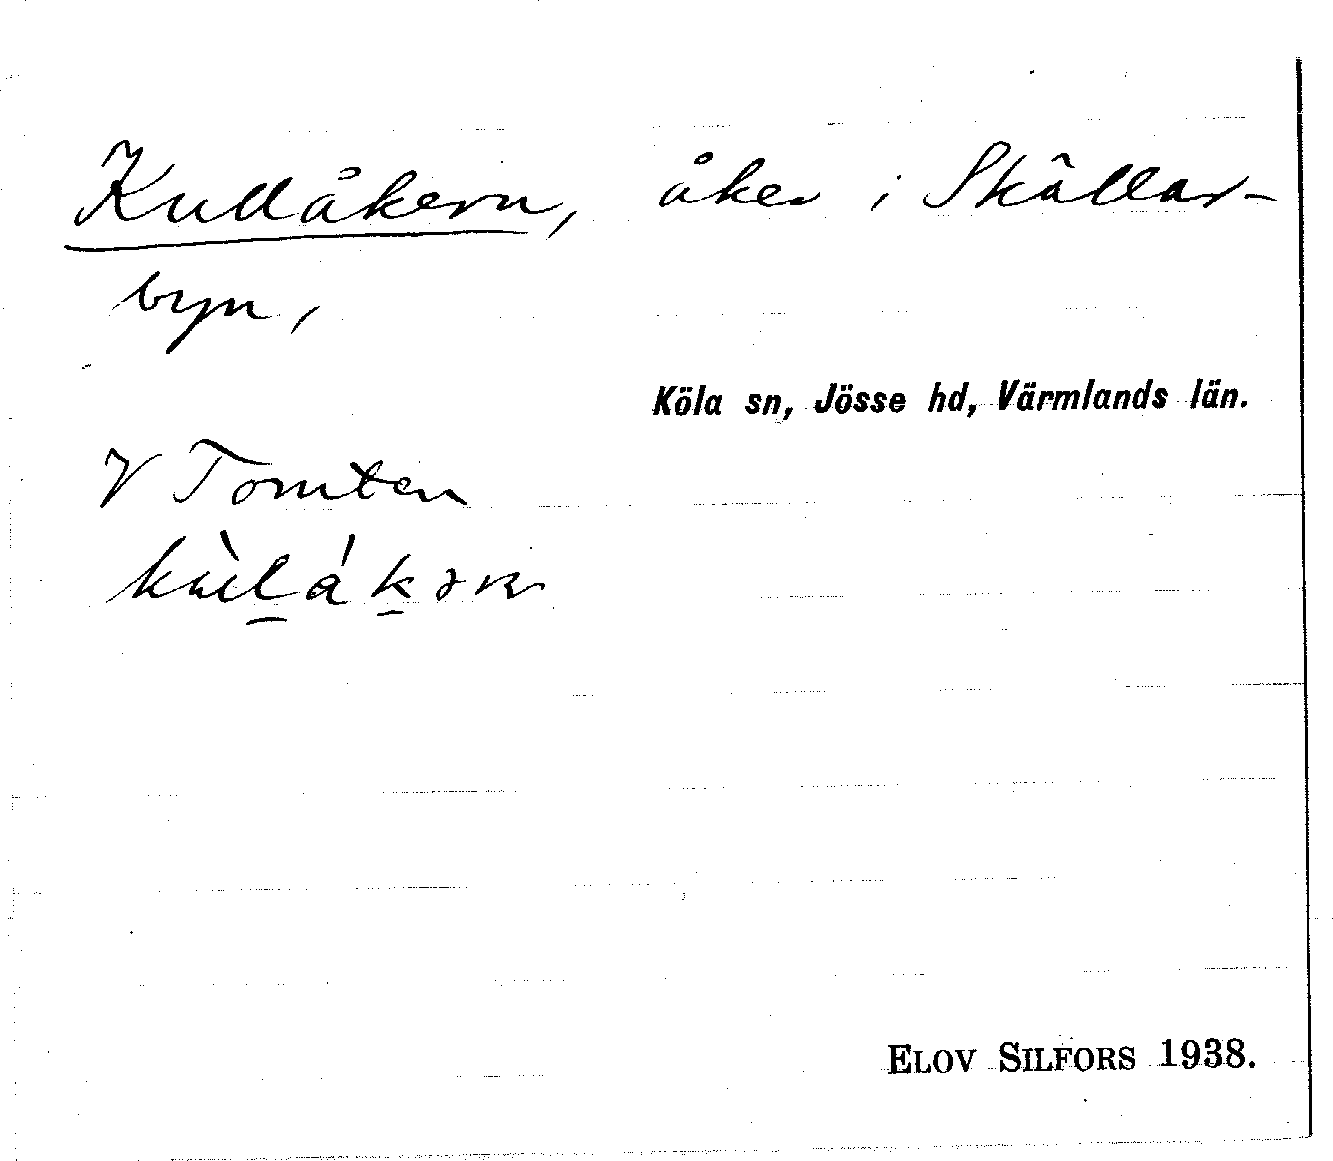 Kullåkern, åker i Skållar-
byn,
Köla sn, Jösse hd, Värmlands län.
V Tomten
kùl̲ák̲ərn
ELOV SILFORS 1938.